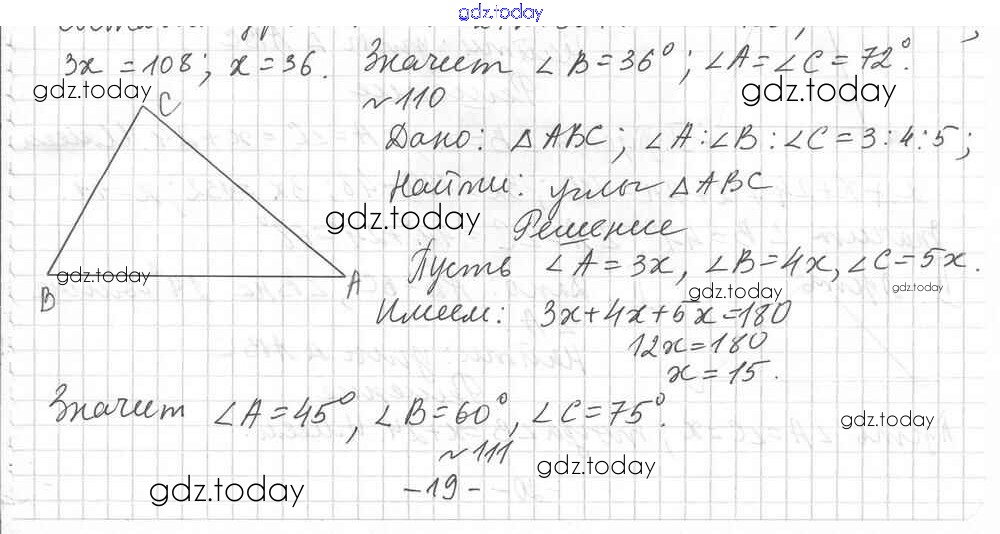 gdz.today
3x = 108; x = 36. Значит ∠B = 36°; ∠A = ∠C = 72°.
gdz.today gdz.today
№110
C
Дано: △ABC; ∠A : ∠B : ∠C = 3 : 4 : 5;
Найти: углы △ABC
gdz.today
Решение
Пусть ∠A = 3x, ∠B = 4x, ∠C = 5x.
gdz.today
B A
gdz.today gdz.today
Имеем: 3x + 4x + 5x = 180
12x = 180
x = 15.
Значит ∠A = 45°, ∠B = 60°, ∠C = 75°.
gdz.today
№111
gdz.today
gdz.today
- 19 -